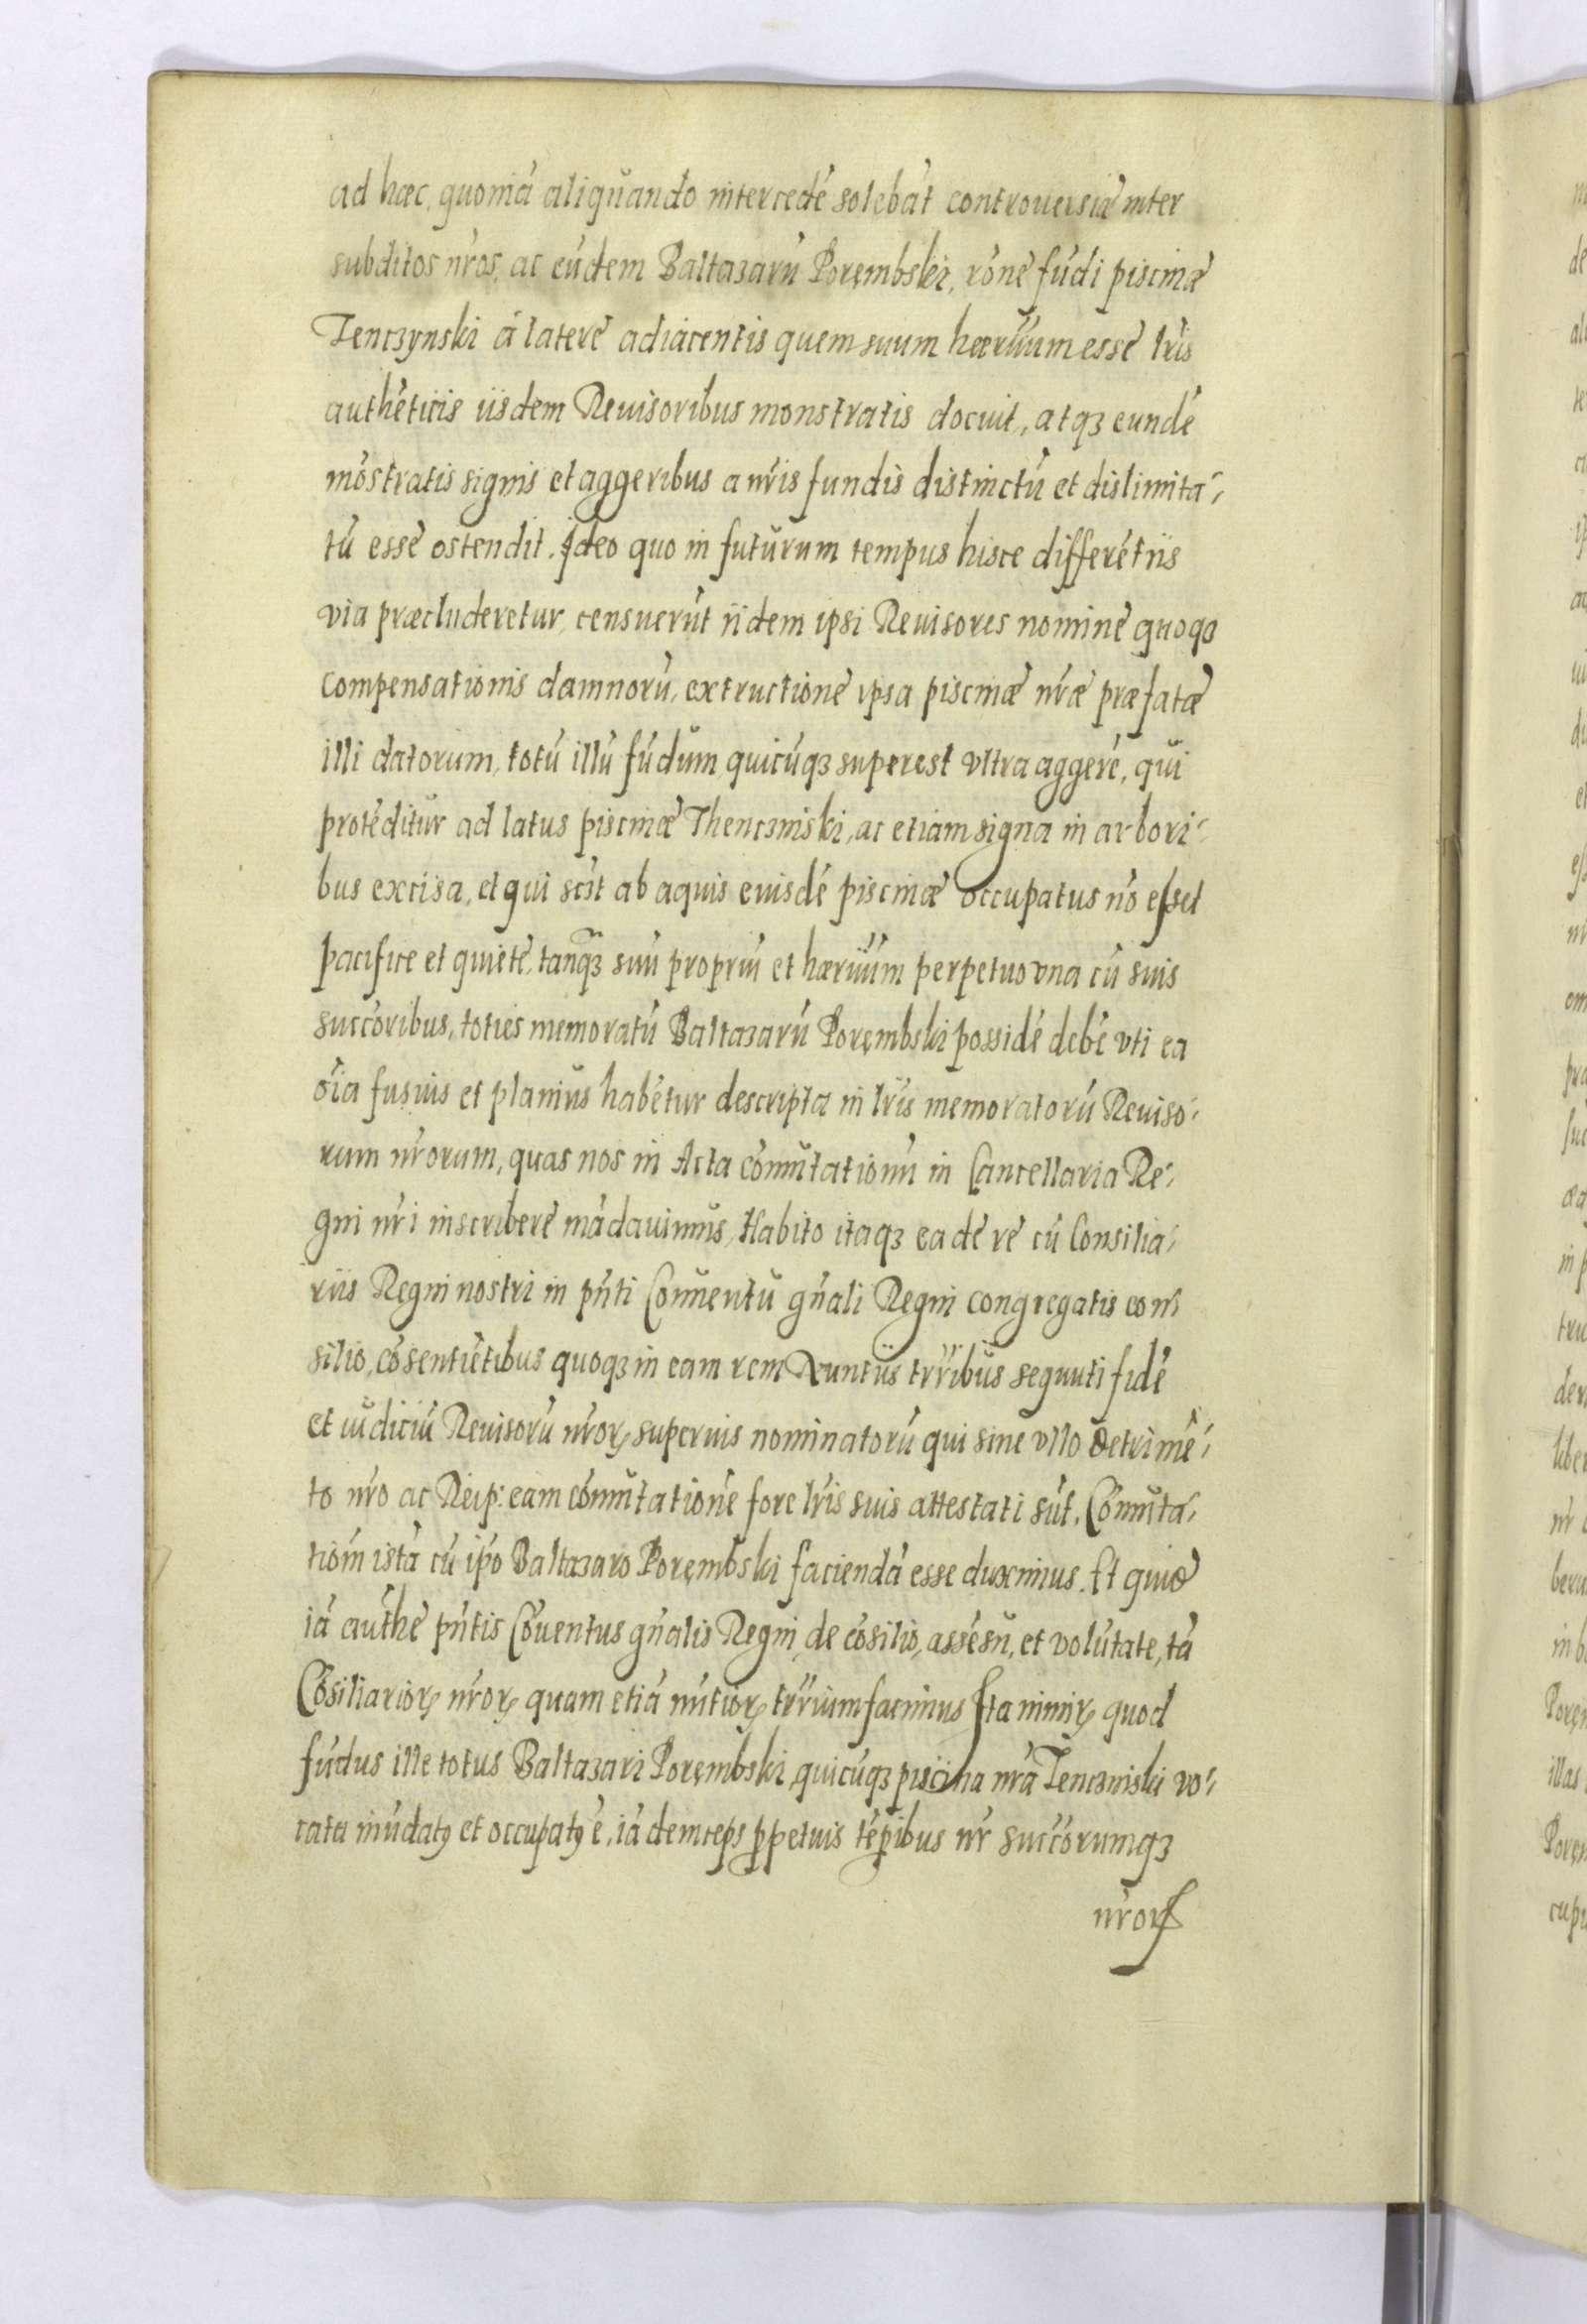 ad hæc, quoniā aliquando intercedē solebāt controuersiæ inter
subditos nr̄os, ac eūdem Baltazarū Porębski, rōne fūdi piscinæ
Tenczynski á latere adiacentis quem suum hærīum esse lr̄is
authēticis iisdem Reuisoribus monstratis docuit, atqȝ eundē
mōstratis signis et aggeribus a nr̄is fundis distinctū et dislimita-
tū esse ostendit. Ideo quo in futurum tempus hisce differētiis
via præcluderetur, censuerūt iidem ipsi Reuisores nomine quoqȝ
compensationis damnorū, extructione ipsa piscinæ nr̄æ præfatæ
illi datorum, totū illū fūdum, quicūqȝ superest vltra aggerē, qui
protēditur ad latus piscinæ Thenczinski, ac etiam signa in arbori-
bus excisa, et qui scīt ab aquis eiusdē piscinæ occupatus nō esset
pacifice et quiete, tanqȝ suū propriū et hærīum perpetuo vna cū suis
succōribus, toties memoratū Baltazarū Porębski possidē debē vti ea
oīa fusius et planius habētur descripta in lr̄is memoratorū Reuiso-
rum nr̄orum, quas nos in Acta cōmutationū in Cancellaria Re-
gni nr̄i inscribere mādauimus, Habito itaqȝ ea de re cū Consilia-
riis Regni nostri in pn̄ti Conuentu gn̄ali Regni congregatis con-
silio, cōsentiētibus quoqȝ in eam rem Nuntiis trr̄ibus sequuti fidē
et iudiciū Reuisorū nr̄orꝝ superius nominatorū qui sine vllo detrimē-
to nr̄o ac Reip: eam cōmutationē fore lr̄is suis attestati sūt. Cōmuta-
tiōm istā cū ipō Baltazaro Porębski faciendā esse duximus. Et quidē
iā authē pn̄tis Cōuentus gn̄alis Regni, de cōsilio, assēsu, et volūtate, tā
Cōsiliariorꝝ nr̄orꝝ quam etiā nūtiorꝝ trr̄ium facimus Ita nimirꝝ quod
fūdus ille totus Baltazari Porębski, quicūqȝ piscina nr̄a Tenczinski vo-
cata inūdatꝯ et occupatꝯ ē, iā deinceps ꝑpetuis tēpibus nr̄ succōrumqȝ
nr̄orꝝ